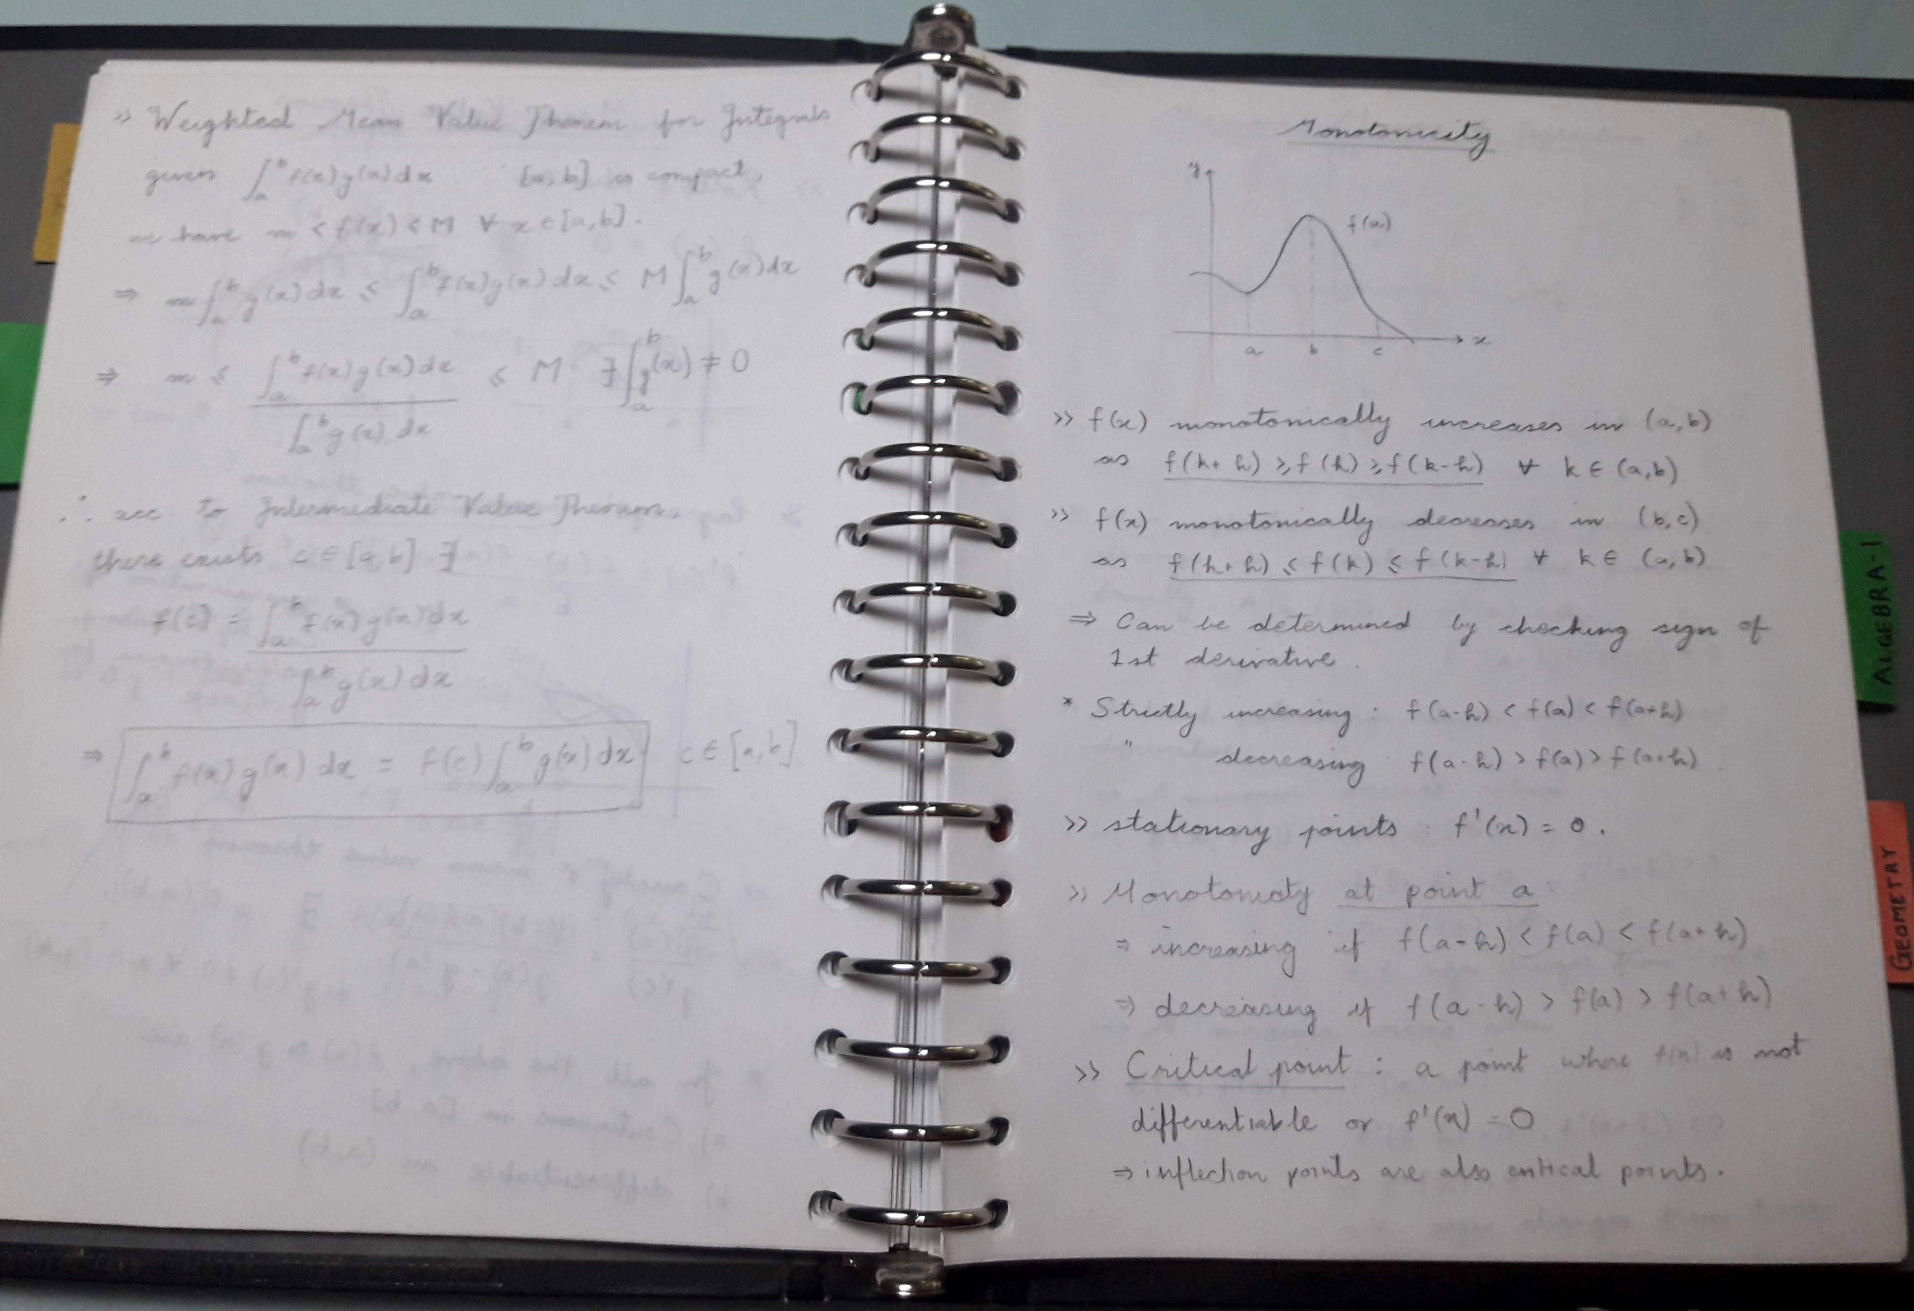 >> Weighted Mean Value Theorem for Integrals
given ∫_a^b f(x)g(x)dx [a,b] is compact,
we have m < f(x) < M ∀ x ∈ [a,b].
⇒ m∫_a^b g(x)dx ≤ ∫_a^b f(x)g(x)dx ≤ M∫_a^b g(x)dx
⇒ m ≤ ∫_a^b f(x)g(x)dx / ∫_a^b g(x)dx ≤ M ∃ ∫_a^b g(x) ≠ 0
∴ acc. to Intermediate Value Theorem
there exists c ∈ [a,b] ∃
f(c) = ∫_a^b f(x)g(x)dx / ∫_a^b g(x)dx
⇒ ∫_a^b f(x)g(x)dx = f(c)∫_a^b g(x)dx c ∈ [a,b].
Monotonicity
y
f(x)
x
a b c
>> f(x) monotonically increases in (a,b)
as f(k+h) ≥ f(k) ≥ f(k-h) ∀ k ∈ (a,b)
>> f(x) monotonically decreases in (b,c)
as f(k+h) ≤ f(k) ≤ f(k-h) ∀ k ∈ (a,b)
⇒ Can be determined by checking sign of
1st derivative.
* Strictly increasing : f(a-h) < f(a) < f(a+h)
" decreasing : f(a-h) > f(a) > f(a+h)
>> stationary points : f'(x) = 0.
>> Monotonicty at point a:
⇒ increasing if f(a-h) < f(a) < f(a+h)
⇒ decreasing if f(a-h) > f(a) > f(a+h)
>> Critical point : a point where f(x) is not
differentiable or f'(x) = 0
⇒ inflection points are also critical points.
ALGEBRA-1
GEOMETRY